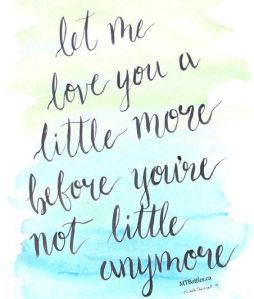 let me
love you a
little more
before you're
not little
anymore
MTBottles.co